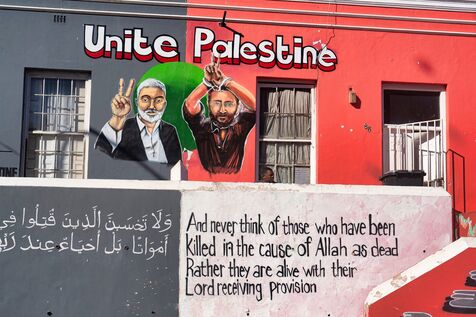 Unite Palestine
وَلَا تَحْسَبَنَّ الَّذِينَ قُتِلُوا فِي
أَمْوَاتًا بَلْ أَحْيَاءٌ عِندَ
And never think of those who have been
killed in the cause of Allah as dead
Rather they are alive with their
Lord receiving provision